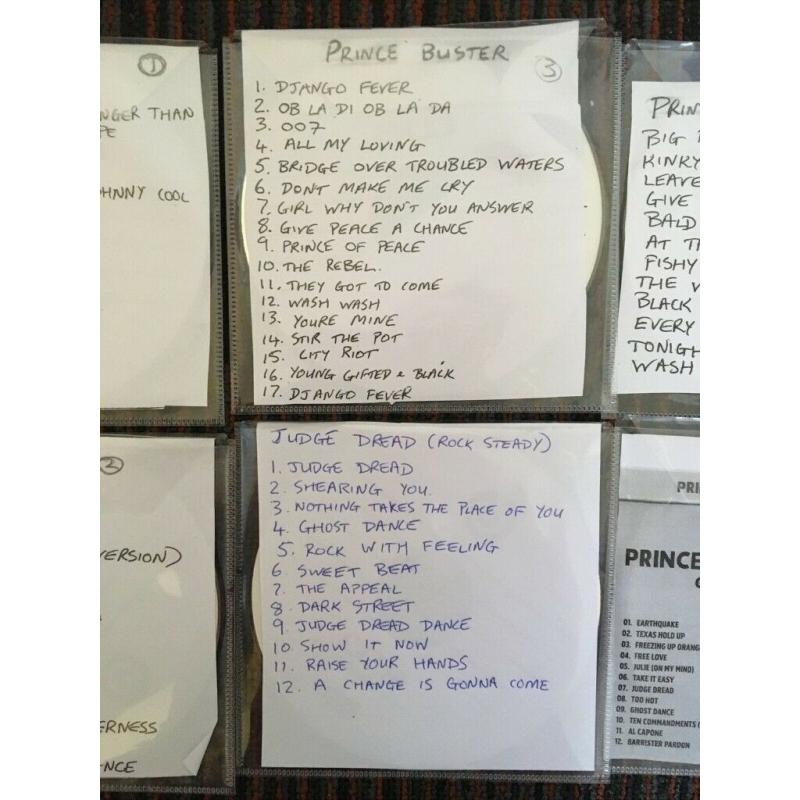 1
NGER THAN
PE
HNNY COOL
PRINCE BUSTER
3
1. DJANGO FEVER
2. OB LA DI OB LA DA
3. 007
4. ALL MY LOVING
5. BRIDGE OVER TROUBLED WATERS
6. DONT MAKE ME CRY
7. GIRL WHY DON'T YOU ANSWER
8. GIVE PEACE A CHANCE
9. PRINCE OF PEACE
10. THE REBEL.
11. THEY GOT TO COME
12. WASH WASH
13. YOURE MINE
14. STIR THE POT
15. CITY RIOT
16. YOUNG GIFTED & BLACK
17. DJANGO FEVER
PRIN
BIG
KINKY
LEAVE
GIVE
BALD
AT T
FISHY
THE
BLACK
EVERY
TONIGH
WASH
2
VERSION)
ERNESS
NCE
JUDGE DREAD (ROCK STEADY)
1. JUDGE DREAD
2. SHEARING YOU.
3. NOTHING TAKES THE PLACE OF YOU
4. GHOST DANCE
5. ROCK WITH FEELING
6. SWEET BEAT
7. THE APPEAL
8. DARK STREET
9. JUDGE DREAD DANCE
10. SHOW IT NOW
11. RAISE YOUR HANDS
12. A CHANGE IS GONNA COME
PRI
PRINCE
01. EARTHQUAKE
02. TEXAS HOLD UP
03. FREEZING UP ORANG
04. FREE LOVE
05. JULIE (ON MY MIND)
06. TAKE IT EASY
07. JUDGE DREAD
08. TOO HOT
09. GHOST DANCE
10. TEN COMMANDMENTS (
11. AL CAPONE
12. BARRISTER PARDON